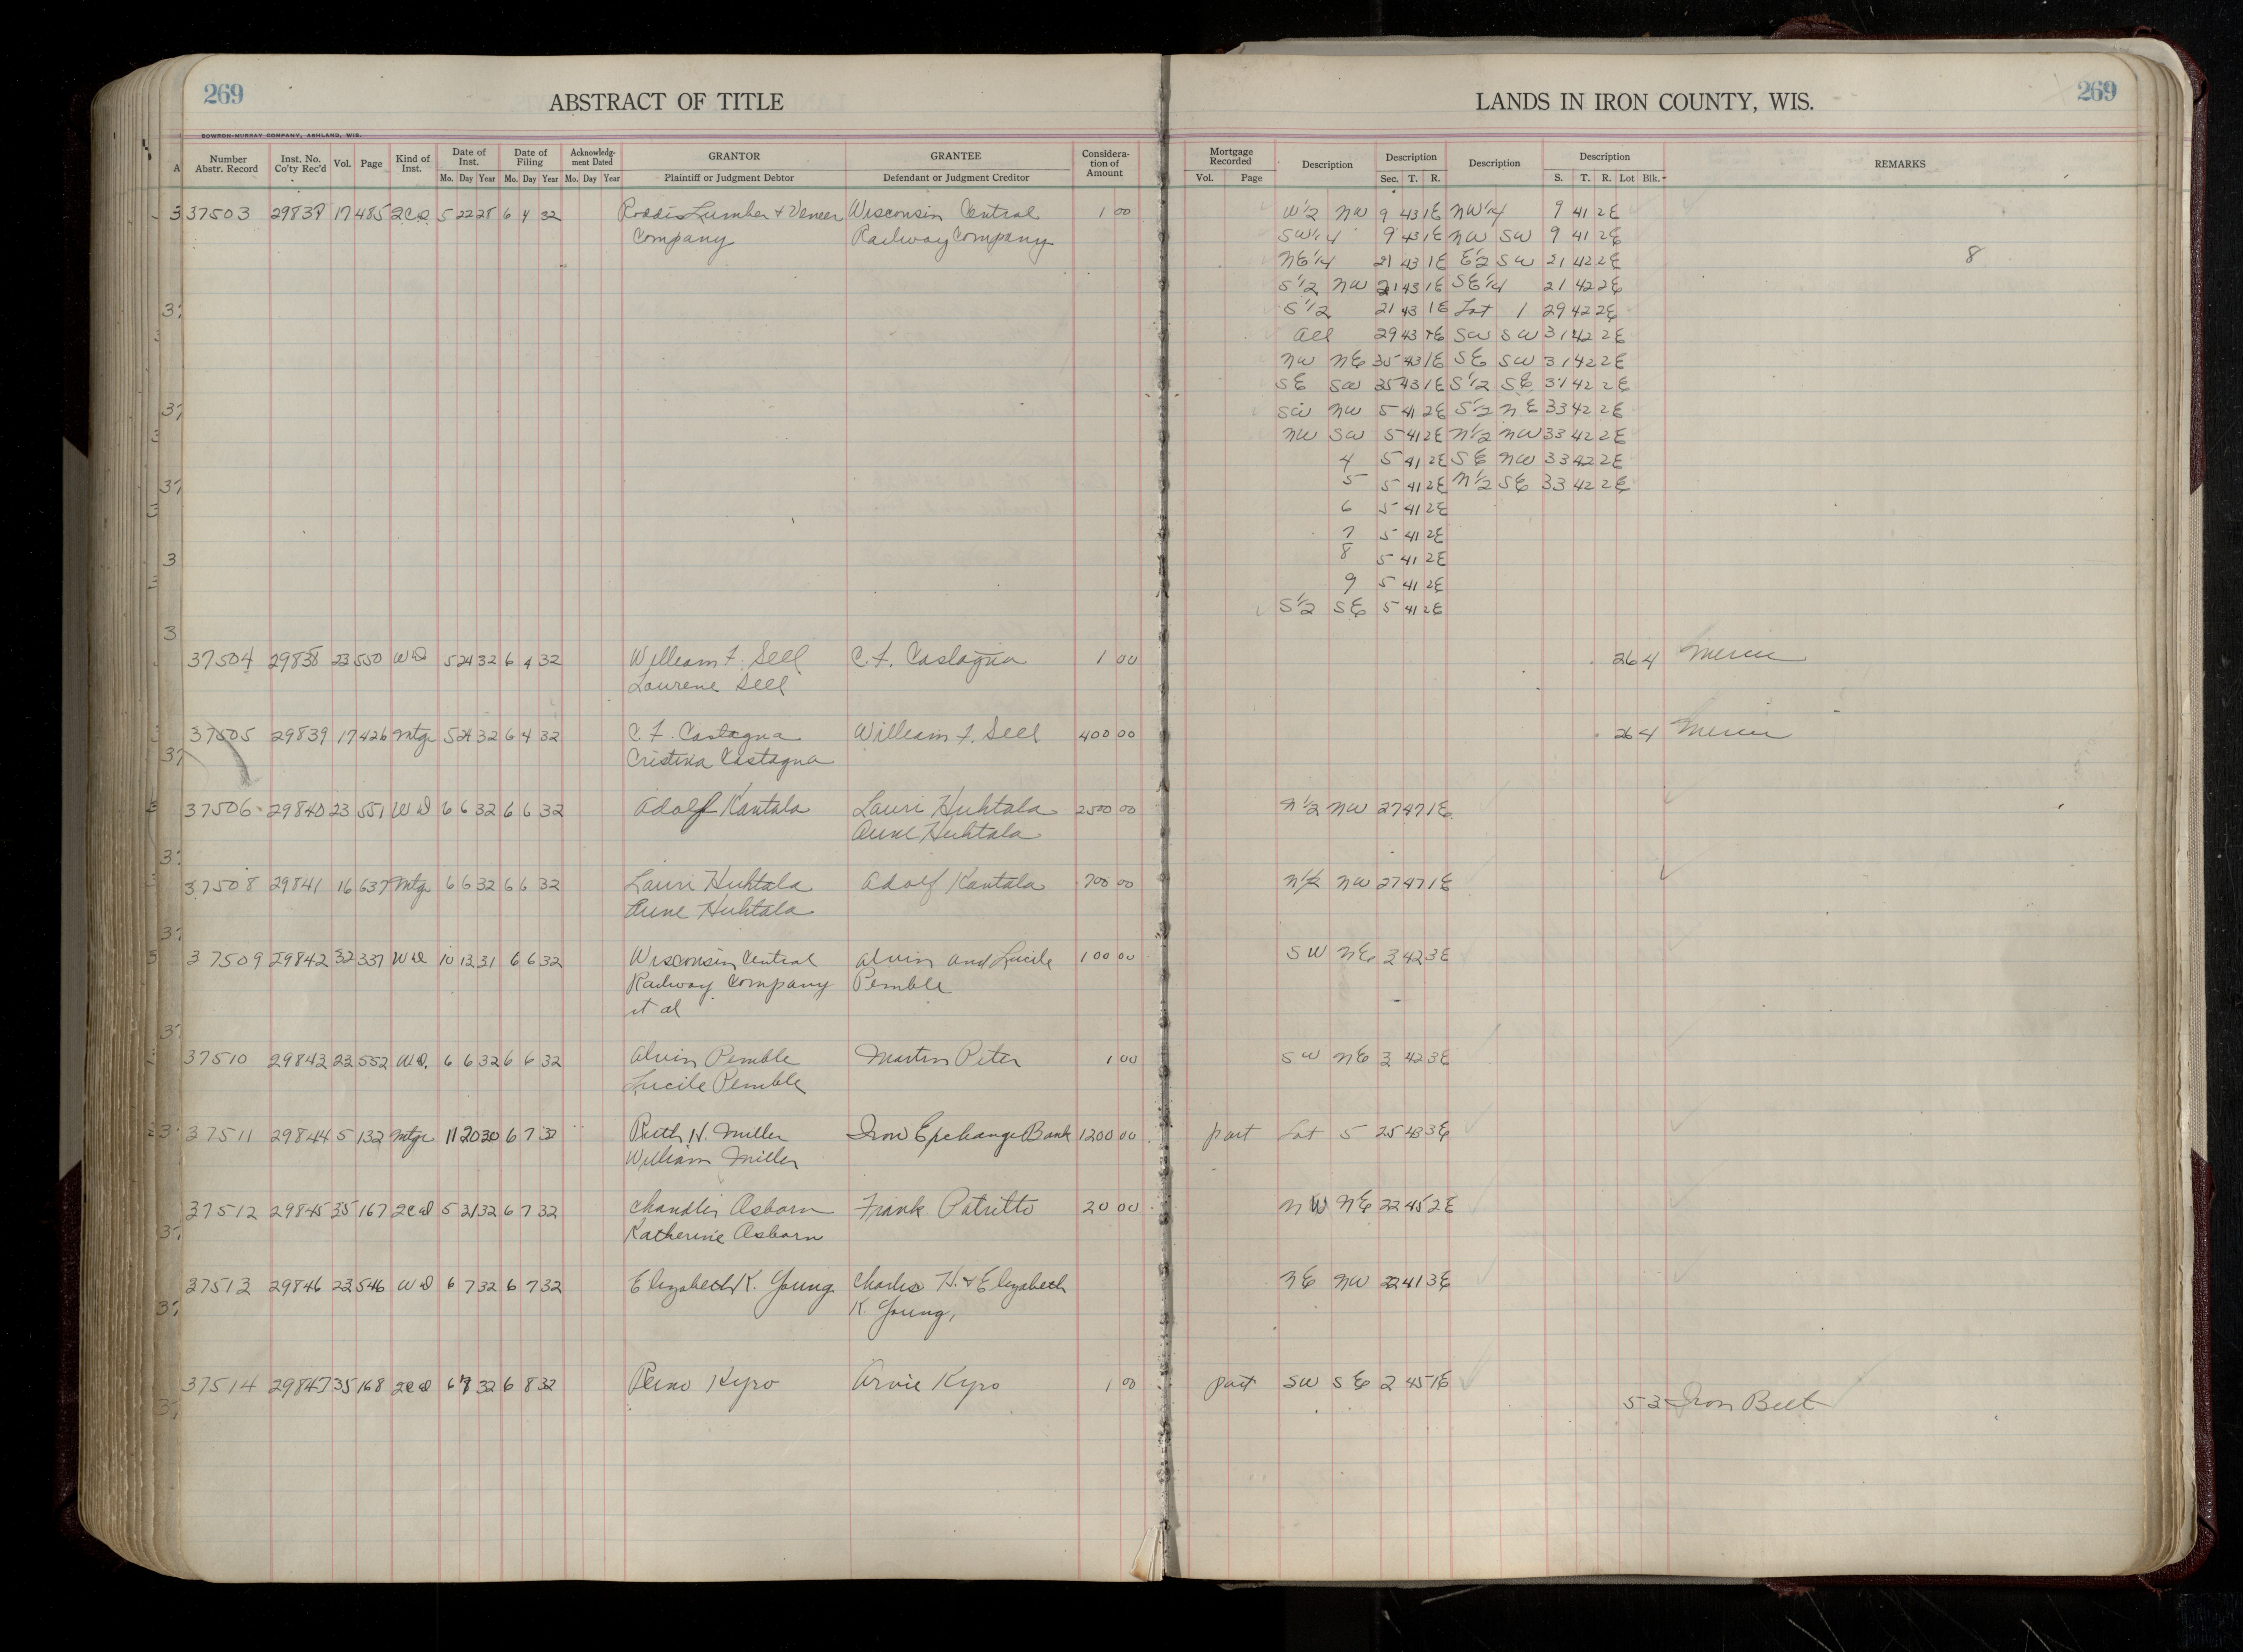 269 ABSTRACT OF TITLE LANDS IN IRON COUNTY, WIS. 269
BOWRON-MURRAY COMPANY, ASHLAND, WIS.
Number Abstr. Record Inst. No. Co'ty Rec'd Vol. Page Kind of Inst. Date of Inst. Date of Filing Acknowledg-ment Dated GRANTOR GRANTEE Considera-tion of Amount Mortgage Recorded Description Description Description Description REMARKS
Mo. Day Year Mo. Day Year Mo. Day Year Plaintiff or Judgment Debtor Defendant or Judgment Creditor Vol. Page Sec. T. R. S. T. R. Lot Blk.
37503 29837 17 485 5 22 28 6 4 32 Roddis Lumber & Veneer Wisconsin Central 1 00 W½ NW 9 43 1E NW¼ 9 41 2E
Company Railway Company SW¼ 9 43 1E NW SW 9 41 2E
NE¼ 21 43 1E E½ SW 21 42 2E 8
S½ NW 21 43 1E SE¼ 21 42 2E
S½ 21 43 1E Lot 1 29 42 2E
All 29 43 1E SW SW 31 42 2E
NW NE 35 43 1E SE SW 31 42 2E
SE SW 35 43 1E S½ SE 31 42 2E
SW NW 5 41 2E S½ NE 33 42 2E
NW SW 5 41 2E N½ NW 33 42 2E
4 5 41 2E SE NW 33 42 2E
5 5 41 2E N½ SE 33 42 2E
6 5 41 2E
7 5 41 2E
8 5 41 2E
9 5 41 2E
S½ SE 5 41 2E
37504 29838 23 550 WD 5 24 32 6 4 32 William F. Sell C. F. Castagna 1 00 26 4 Mercer
Laurene Sell
37505 29839 17 426 Mtge 5 24 32 6 4 32 C. F. Castagna William F. Sell 400 00 26 4 Mercer
Cristina Castagna
37506 29840 23 551 WD 6 6 32 6 6 32 Adolf Kantala Lauri Huhtala 2500 00 N½ NW 27 47 1E
Aune Huhtala
37508 29841 16 637 Mtge 6 6 32 6 6 32 Lauri Huhtala Adolf Kantala 700 00 N½ NW 27 47 1E
Aune Huhtala
37509 29842 32 337 WD 10 13 31 6 6 32 Wisconsin Central Alvin and Lucile 100 00 SW NE 3 42 3E
Railway Company Pemble
et al
37510 29843 23 552 WD. 6 6 32 6 6 32 Alvin Pemble Martin Peter 1 00 SW NE 3 42 3E
Lucile Pemble
37511 29844 5 132 Mtge 11 20 30 6 7 32 Ruth H. Miller Iron Exchange Bank 1200 00 part Lot 5 25 43 3E
William Miller
37512 29845 35 167 2CD 5 31 32 6 7 32 Chandler Osborn Frank Patritto 20 00 NW NE 22 45 2E
Katherine Osborn
37513 29846 23 546 WD 6 7 32 6 7 32 Elizabeth K. Young Charles H. & Elizabeth NE NW 22 41 3E
K. Young,
37514 29847 35 168 2CD 6 7 32 6 8 32 Reino Kyro Arvie Kyro 1 00 part SW SE 2 45 1E
5 3 Iron Belt